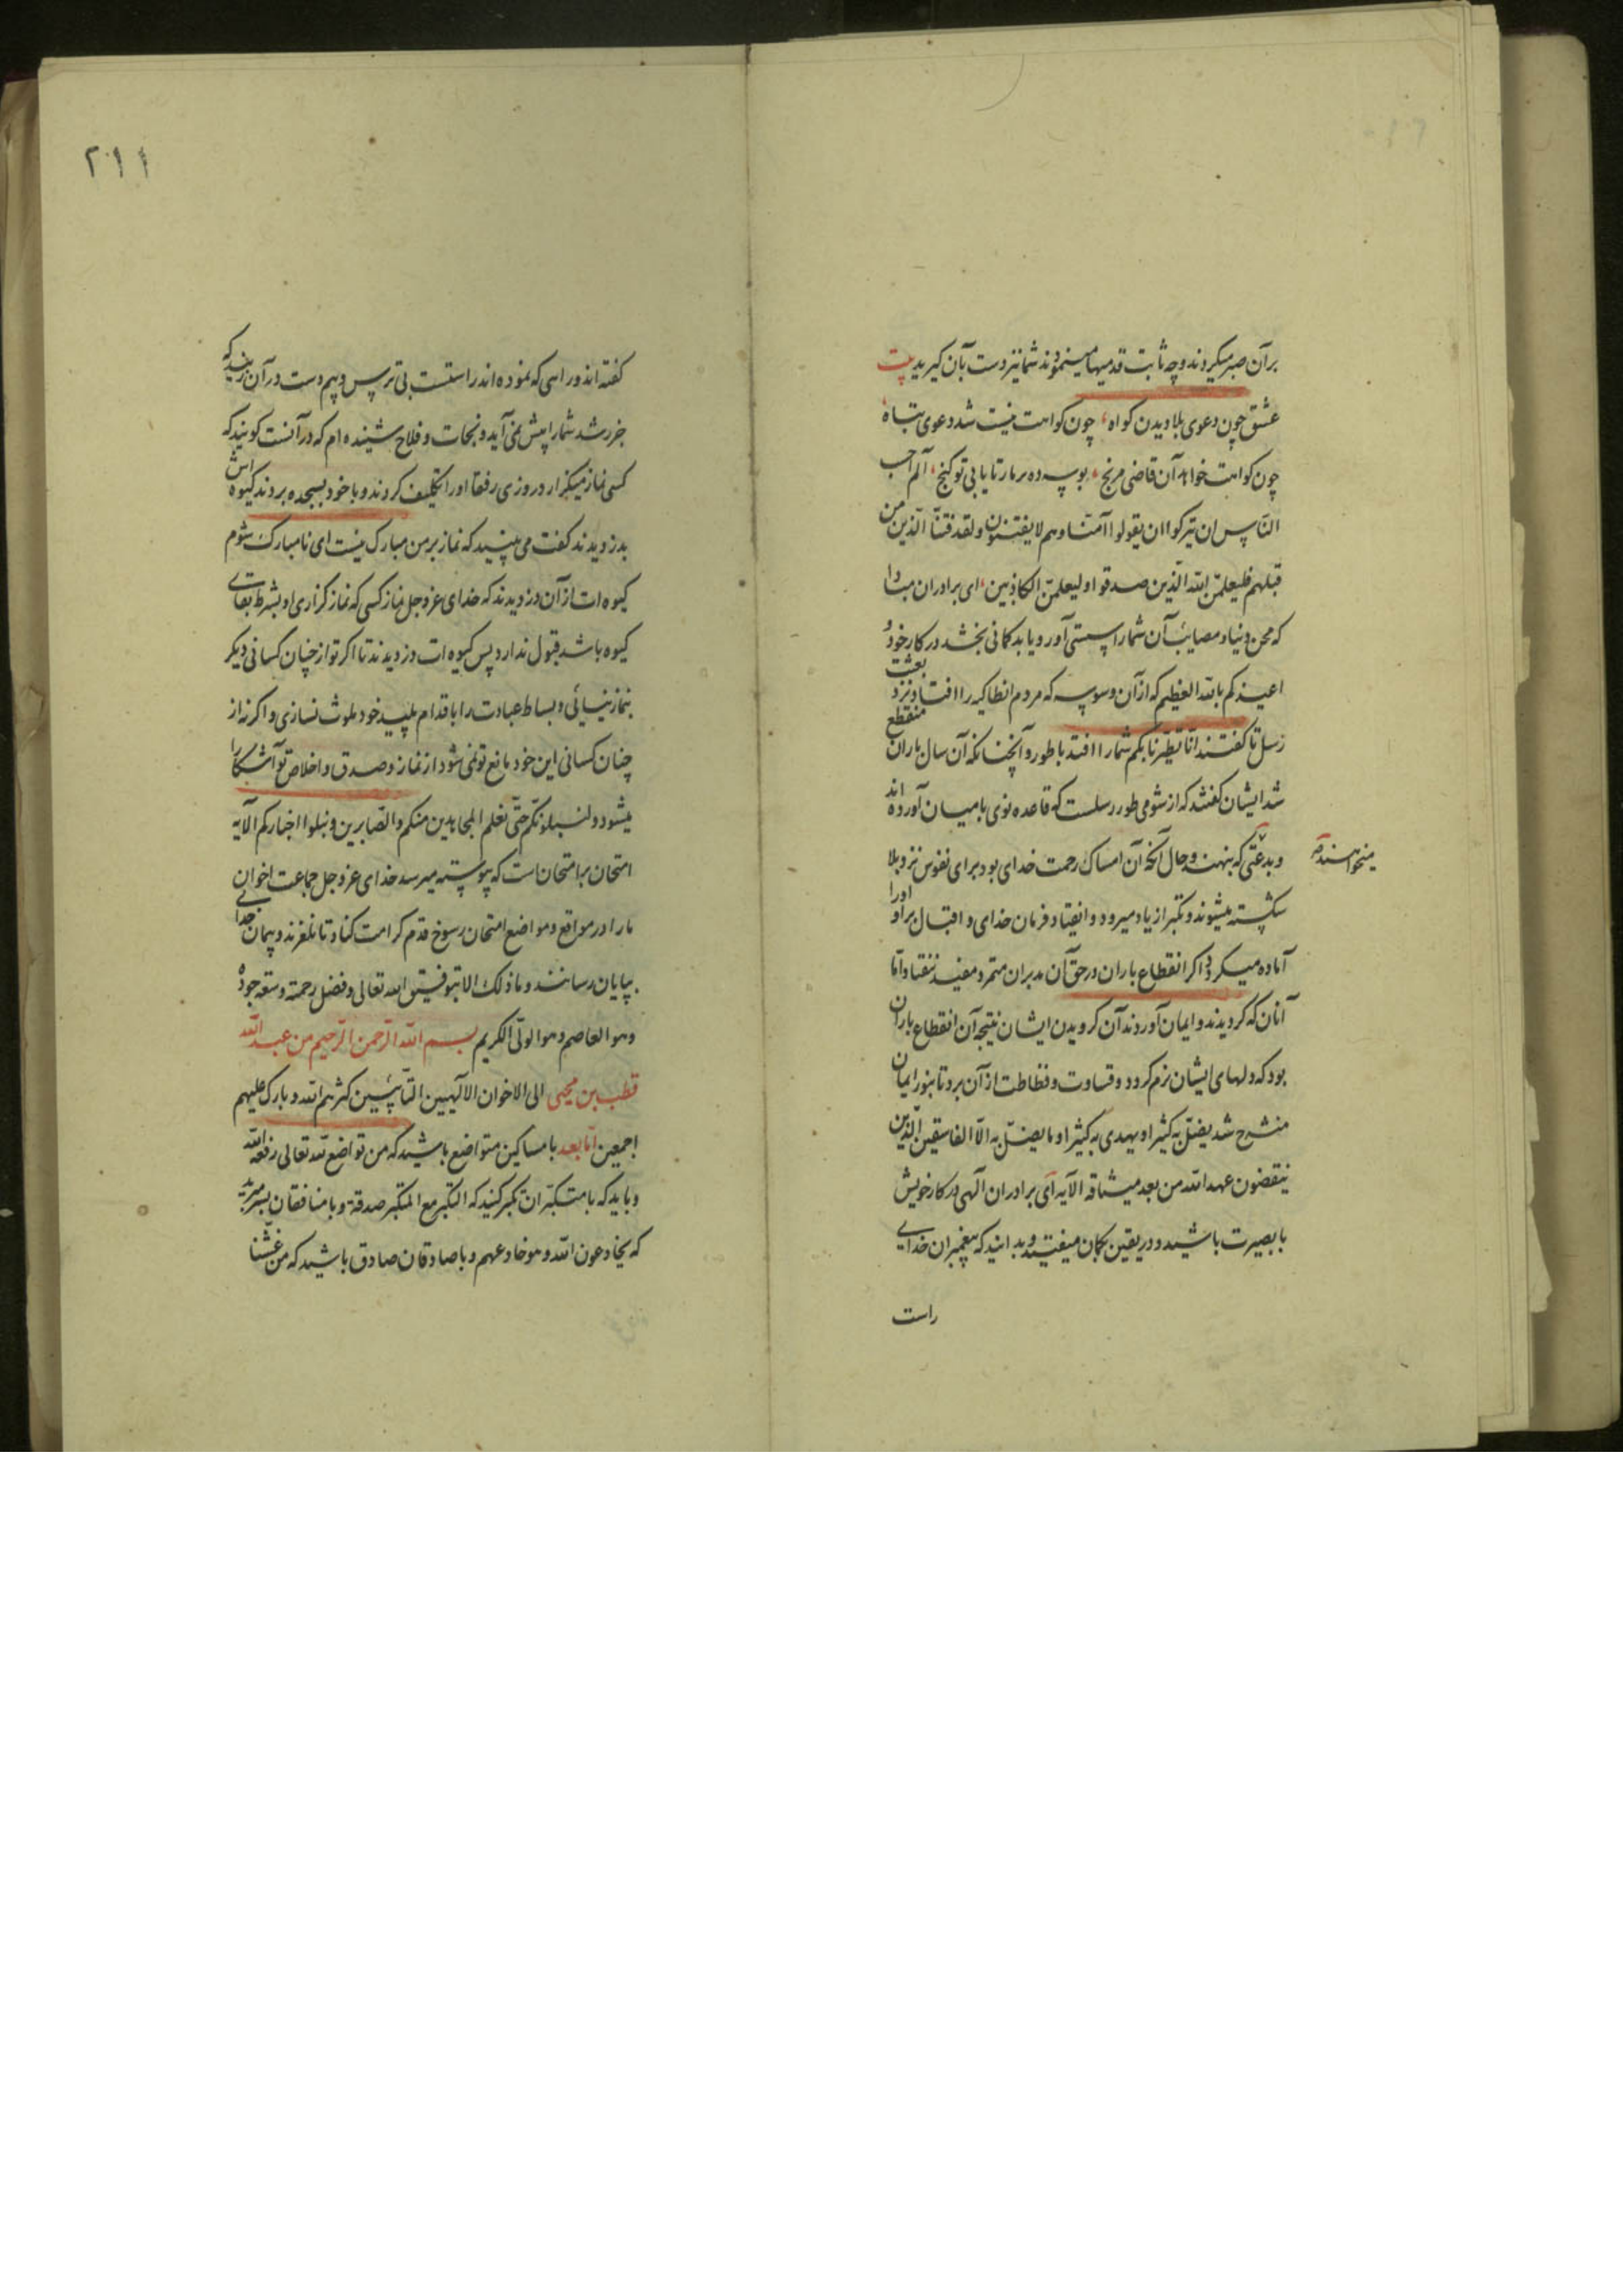 بر آن صبر میکردند و چه ثابت قدمیها مینمودند شما نیز دست بآن گیرید بیت
عشق چون دعوی بلا دیدن گواه، چون گواهت نیست شد دعوی تباه،
چون گواهت خواهد آن قاضی مرنج، بوسه ده بر مار تا یابی تو گنج، الم احسب
الناس ان یترکوا ان یقولوا آمنا و هم لا یفتنون و لقد فتنا الذین من
قبلهم فلیعلمن الله الذین صدقوا و لیعلمن الکاذبین، ای برادران مبادا
که محن دنیا و مصایب آن شما را سستی آورد یا بدگمانی بخشد در کار خود و
اعیذکم بالله العظیم که از آن وسوسه که مردم انطاکیه را افتاد نزد بعثت
رسل تا گفتند انا تطیرنا بکم شما را افتد باطور و آنچنانکه آن سال باران منقطع
شد ایشان گفتند که از شومی طور رسلست که قاعده نوی بامیان آورده اند
و بدعتی که بنهند و حال آنکه آن امساک رحمت خدای بود برای نفوس نزد بلا
میخواهند صح
شکسته میشوند و تکبر از یاد میرود و انقیاد فرمان خدای و اقبال بر او او را
آماده میگردد اگر انقطاع باران در حق آن مدبران متمرد مفید نیفتاد اما
آنان که گرویدند و ایمان آوردند آن گرویدن ایشان نتیجه آن انقطاع باران
بود که دلهای ایشان نرم کرد و قساوت و فظاظت از آن برد تا بنور ایمان
منشرح شد یضل به کثیرا و یهدی به کثیرا و ما یضل به الا الفاسقین الذین
ینقضون عهد الله من بعد میثاقه الآیه ای برادران الهی در کار خویش
با بصیرت باشید و در یقین بگمان میفتید و بدانید که پیغمبران خدای
راست
۲۱۱
گفته اند و راهی که نموده اند راستست بی ترس و بیم دست در آن زنید که
جز رشد شما را پیش نمی آید و نجات و فلاح شنیده ام که در آنست گویند که
کسی نماز میگزارد روزی رفقا او را تکلیف کردند و با خود بمسجد بردند گیوه اش
بدزدیدند گفت می بینید که نماز بر من مبارک نیست ای نامبارک شوم
گیوه ات از آن دزدیدند که خدای عز و جل نماز کسی که نماز گزاری او بشرط بقای
گیوه باشد قبول ندارد پس گیوه ات دزدیدند تا اگر تو از چنان کسانی دیگر
بنماز نیائی و بساط عبادت را باقدام پلید خود ملوث نسازی و اگر نه از
چنان کسانی این خود مانع تو نمی شود از نماز و صدق و اخلاص تو آشکارا
میشود و لنبلونکم حتی نعلم المجاهدین منکم و الصابرین و نبلوا اخبارکم الآیه
امتحان بر امتحان است که پیوسته میرسد خدای عز و جل جماعت اخوان
ما را در مواقع و مواضع امتحان رسوخ قدم کرامت کناد تا نلغزند و پیمان خدای
بپایان رسانند و ما ذلک الا بتوفیق الله تعالی و فضل رحمته و سعه جوده
و هو العاصم و هو الولی الکریم بسم الله الرحمن الرحیم من عبد الله
قطب بن محیی الی الاخوان الالهیین التائبین کثرهم الله و بارک علیهم
اجمعین اما بعد با مساکین متواضع باشید که من تواضع لله تعالی رفعه الله
و باید که با متکبران تکبر کنید که التکبر مع المتکبر صدقه و با منافقان بسر مبرید
که یخادعون الله و هو خادعهم و با صادقان صادق باشید که من غشنا